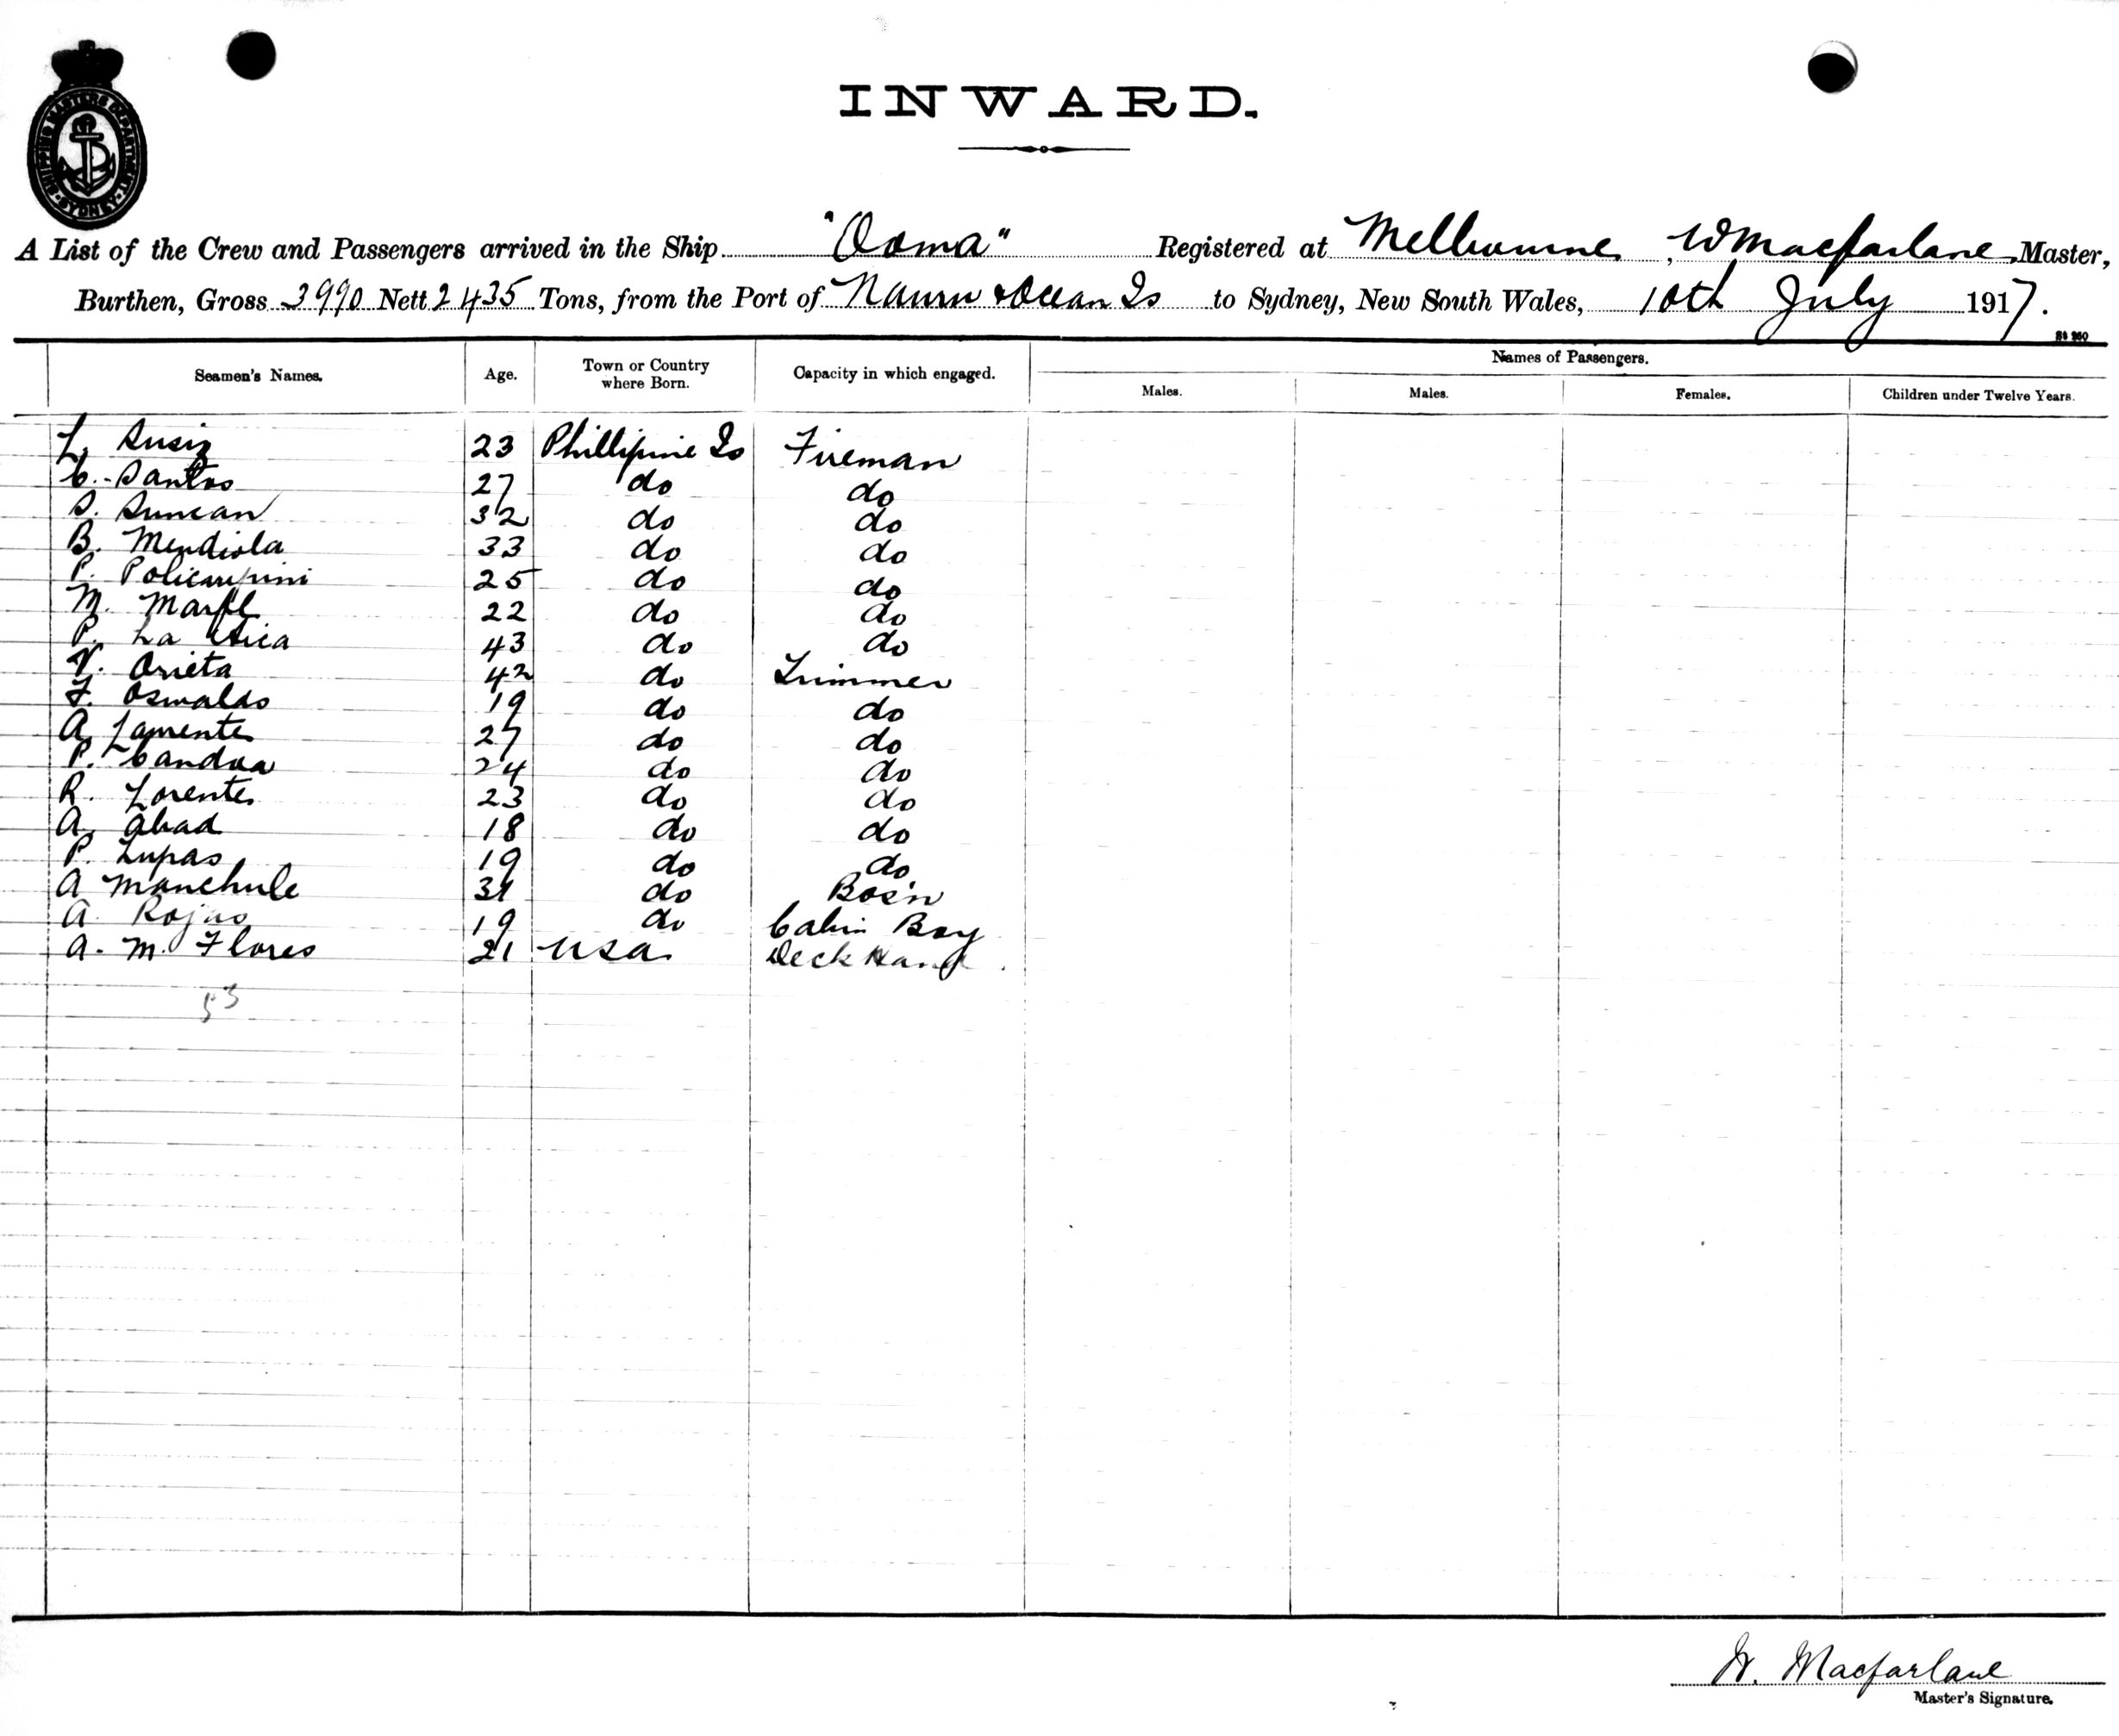 SHIPPING MASTERS DEPARTMENT
SYDNEY
INWARD.
A List of the Crew and Passengers arrived in the Ship "Ooma" Registered at Melbourne, W Macfarlane, Master,
Burthen, Gross 3990 Nett 2435 Tons, from the Port of Nauru & Ocean Is to Sydney, New South Wales, 10th July 1917.
Names of Passengers.
Seamen's Names. Age. Town or Country where Born. Capacity in which engaged. Males. Males. Females. Children under Twelve Years.
L. 23 Phillipine Is Fireman
C. Santos 27 do do
S. Duncan 32 do do
B. Mendiola 33 do do
P. 25 do do
M. 22 do do
P. La 43 do do
V. Orieta 42 do Trimmer
F. Oswaldo 19 do do
A. 27 do do
P. 24 do do
R. Lorente 23 do do
A. Abad 18 do do
P. Lupas 19 do do
A Manchule 31 do Bos'n
A. Rojas 19 do Cabin Boy
A. M. Flores 21 USA Deck Hand
53
W. Macfarlane
Master's Signature.